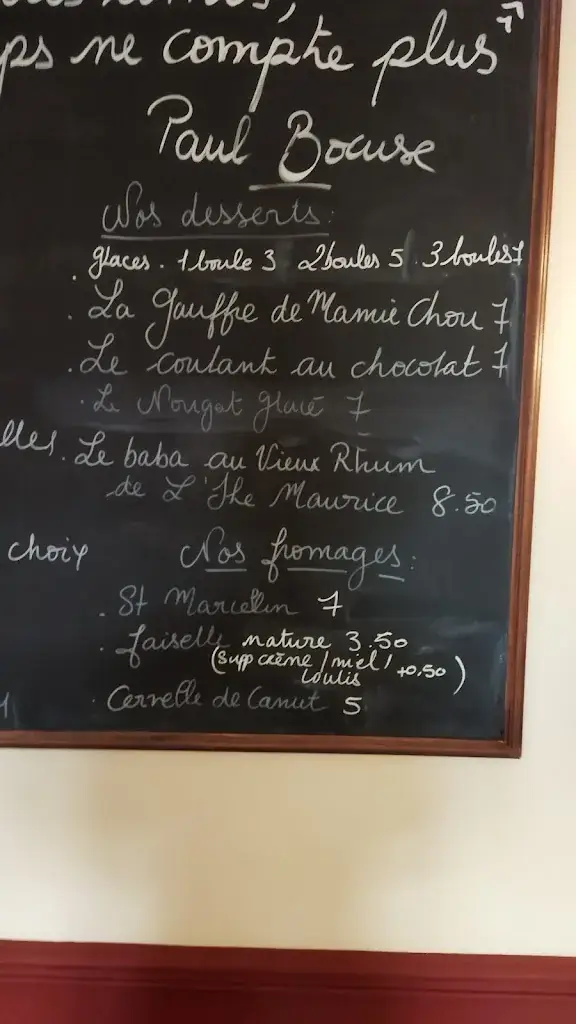 ps ne compte plus »
Paul Bocuse
Nos desserts:
. glaces. 1 boule 3 2 boules 5. 3 boules 7
. La Gauffre de Mamie Chou 7
. Le coulant au chocolat 7
. Le Nougat glacé 7
lles. Le baba au Vieux Rhum
de L'Ile Maurice 8.50
choix Nos fromages:
. St Marcellin 7
. faiselle nature 3.50
(supp crème / miel /
coulis +0.50)
. Cervelle de Canut 5